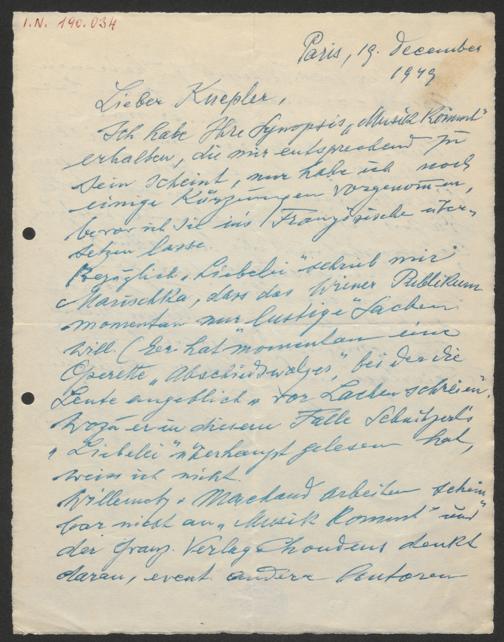 I.N. 190.034
Paris, 19. December
1949
Lieber Knepler,
Ich habe Ihre Synopsis „Musik kommt"
erhalten, die mir entsprechend zu
sein scheint, nur habe ich noch
einige Kürzungen vorgenommen,
bevor ich sie ins Französische über-
setzen lasse.
Bezüglich „Liebelei" schrieb mir
Marischka, dass das Wiener Publikum
momentan nur "lustige" Sachen
will (Er hat momentan eine
Operette „Abschiedswalzer", bei der die
Leute angeblich „vor Lachen schreien".
Wozu er in diesem Falle Schnitzler's
„Liebelei" überhaupt gelesen hat,
weiss ich nicht.
Willemetz + arbeiten schein-
bar nicht an „Musik kommt" und
der franz. Verlag Choudens denkt
daran, event. andere Autoren